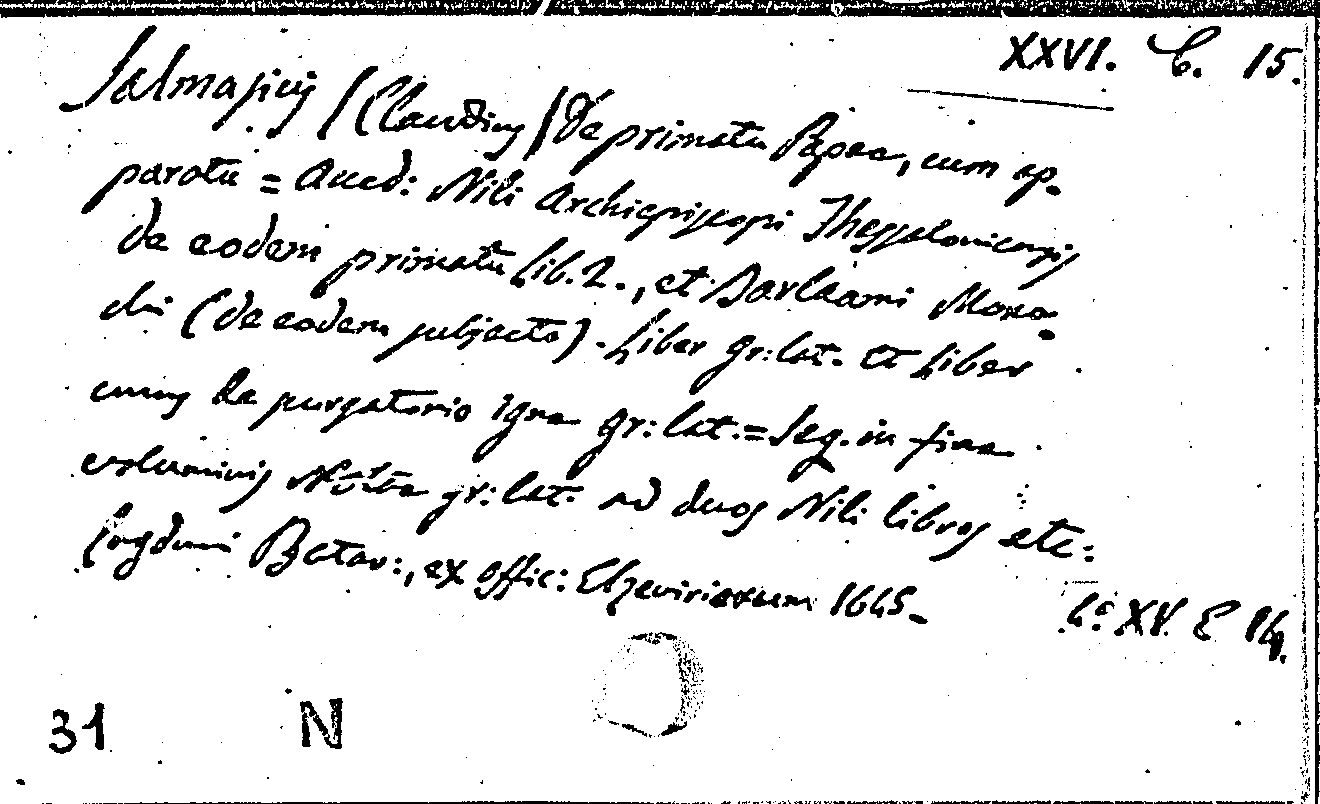 XXVI. C. 15.
Salmasius /(Claudius/ De primatu Papae, cum ap-
paratu = Acced: Nili Archiepiscopi Thessalonicensis
de eodem primatu Lib. 2., et Barlaami Mona-
chi (de eodem subjecto). Liber gr: lat. et Liber
cuius de purgatorio igne gr: lat. = Seq. in fine
voluminis Notae gr: lat. ad duos Nili libros etc:
Lugduni Batav:, ex offic: Elzeviriorum 1645.
4º XV. E 14.
31 N